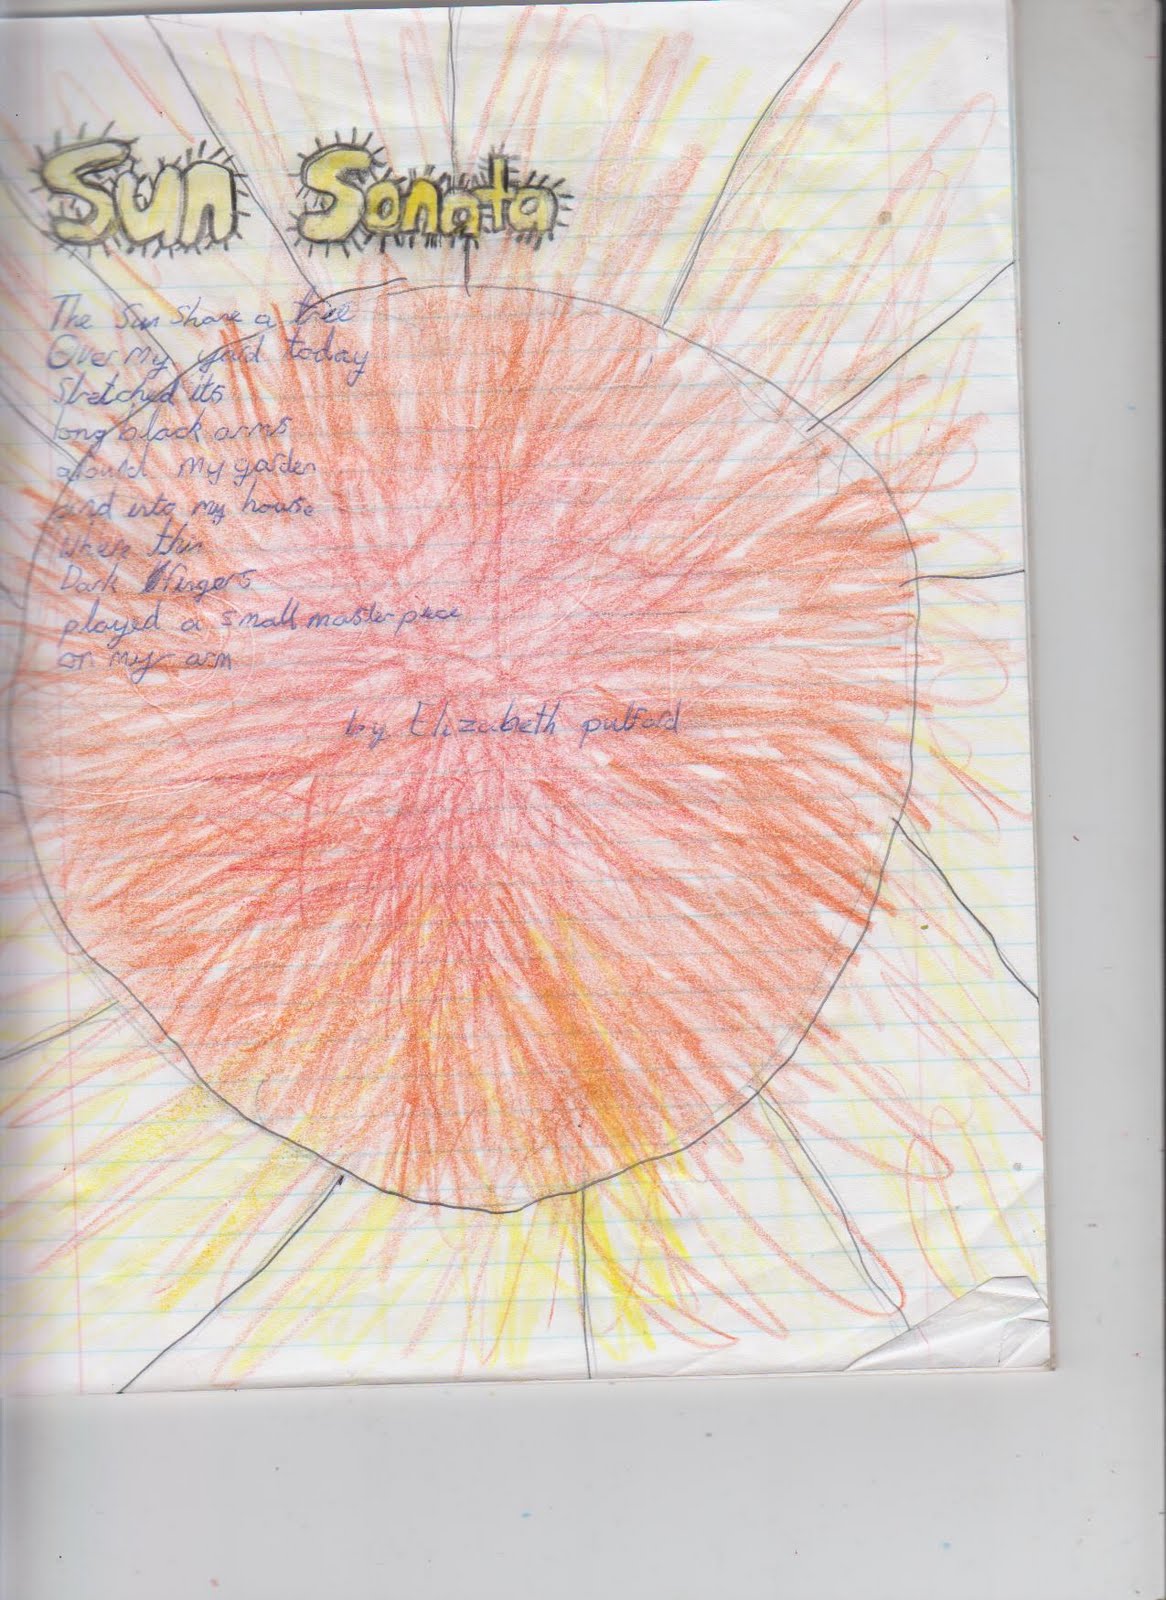 Sun Sonata
The Sun Shone a tree
Over My yard today
Stretched its
long black arms
around My garden
and into my house
Where thin
Dark fingers
played a small masterpiece
on my arm
by Elizabeth pulford